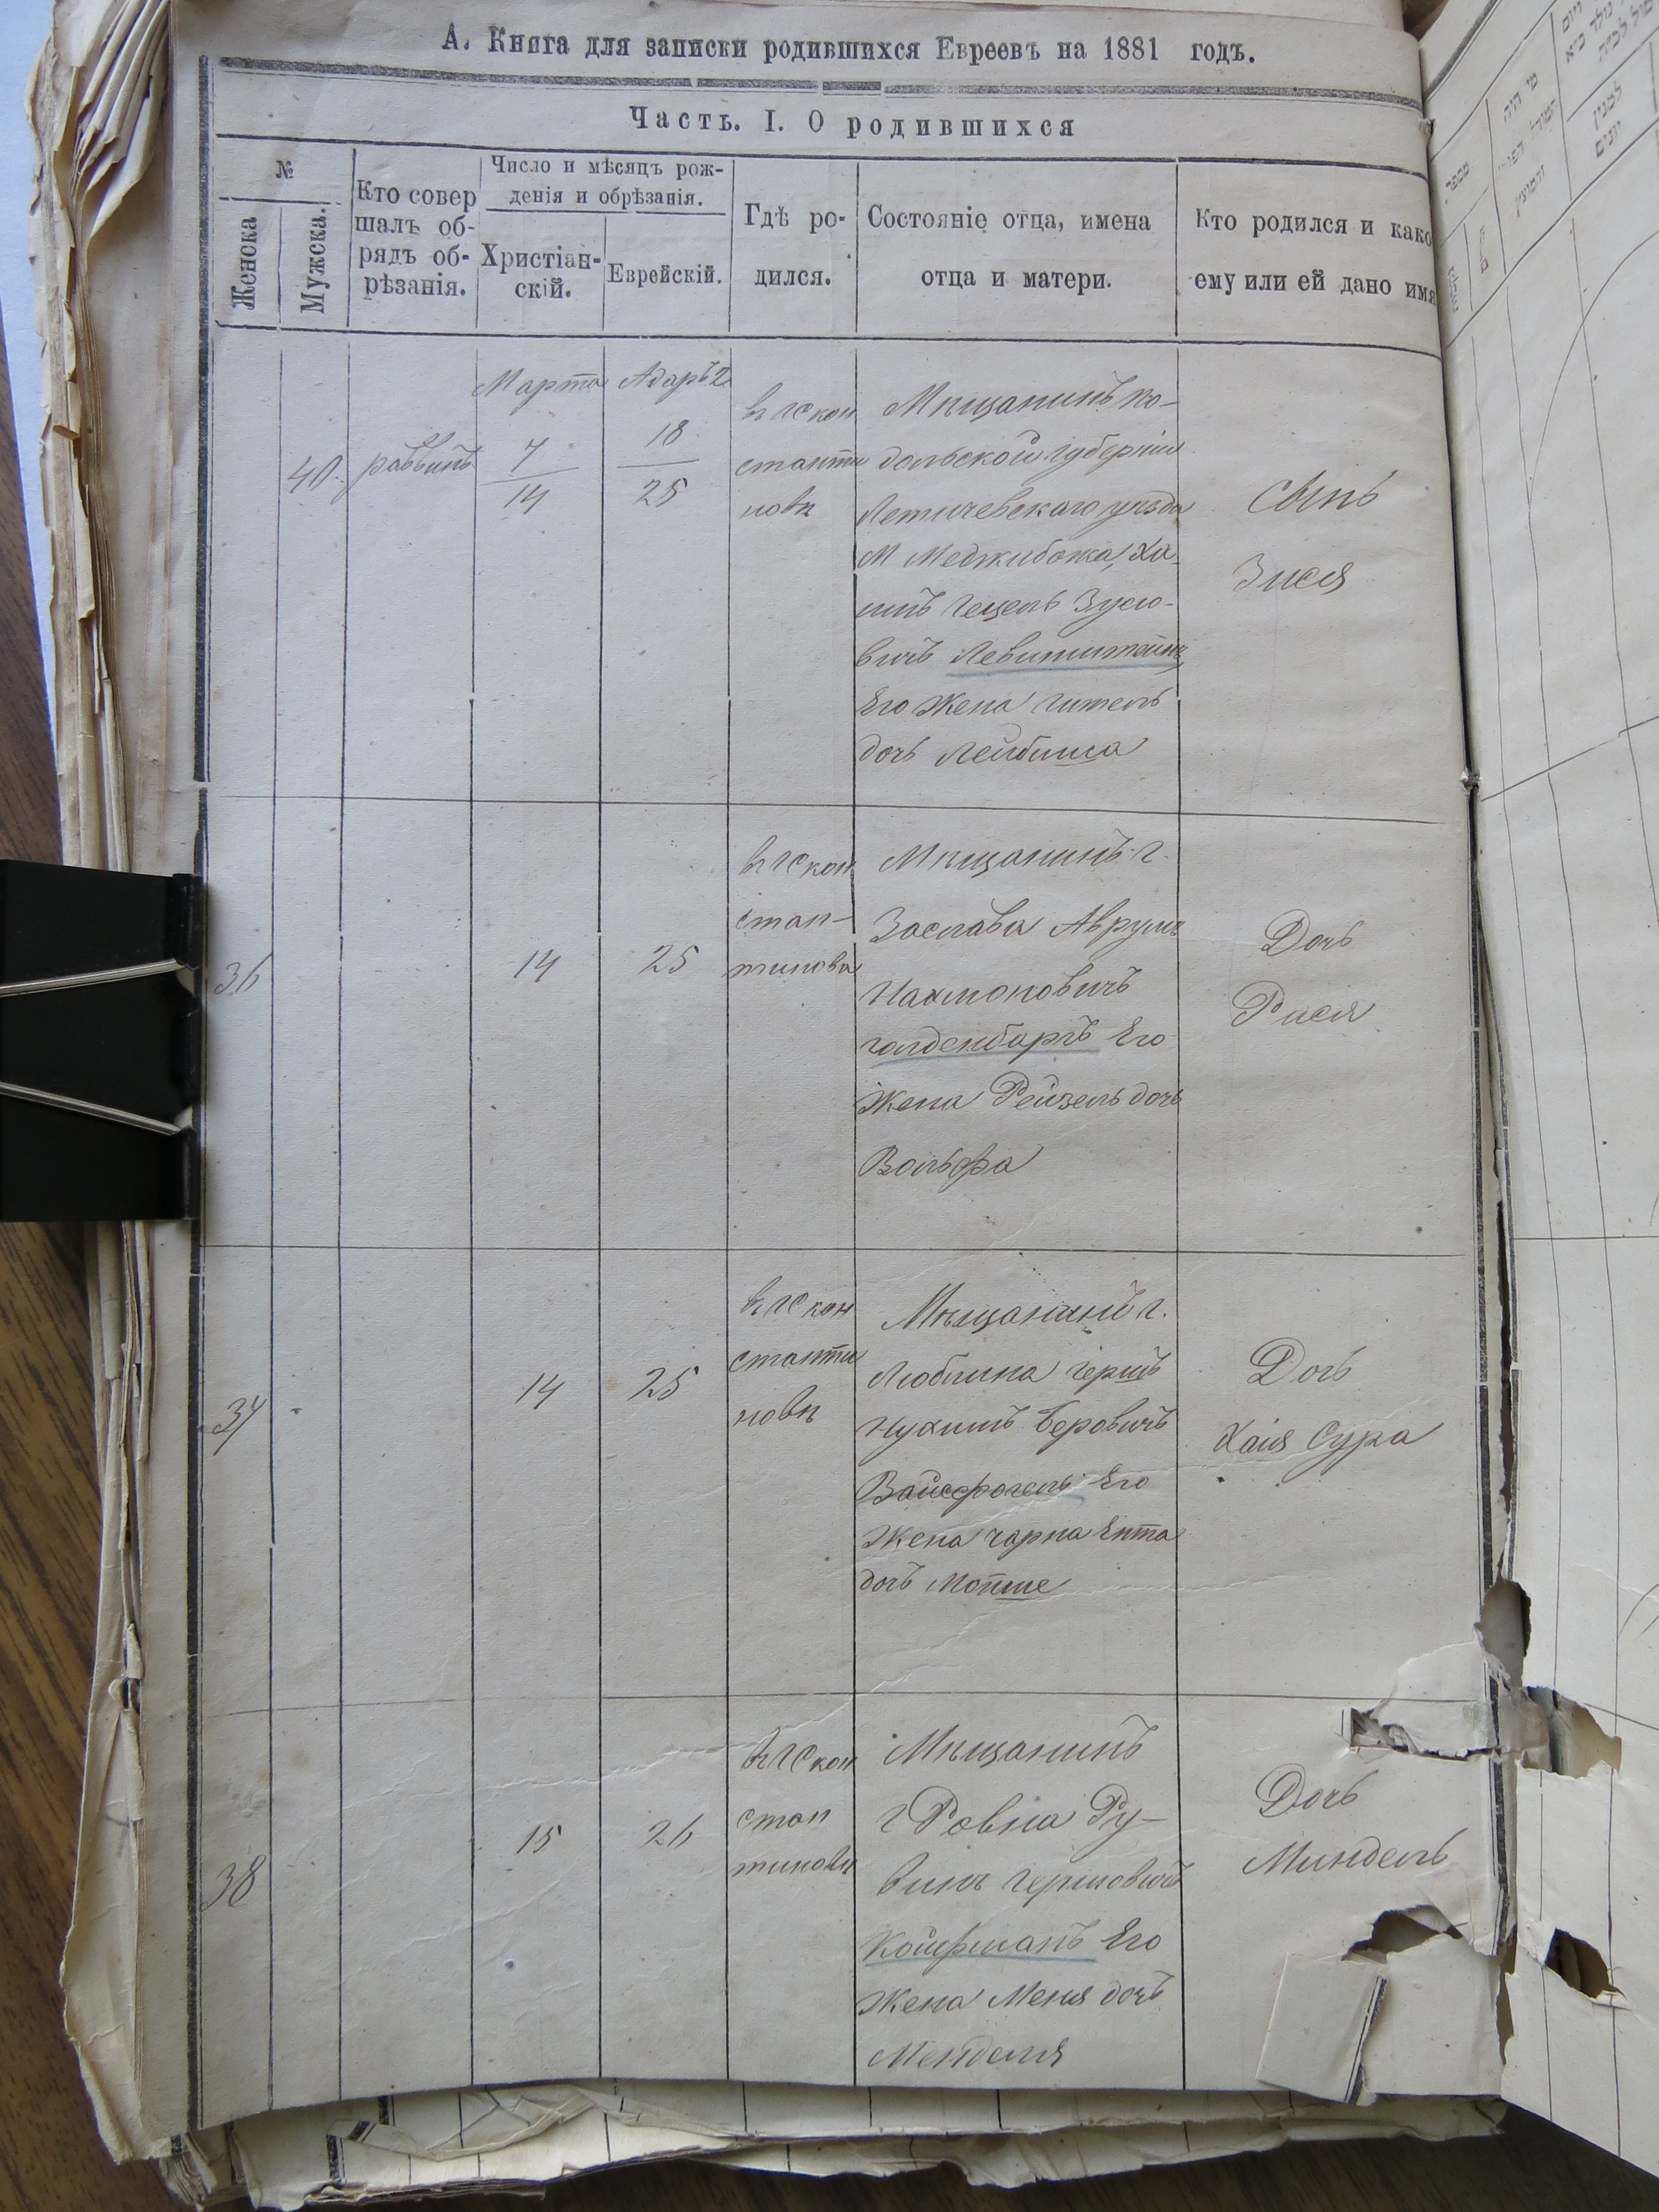 А. Книга для записки родившихся Евреевъ на 1881 годъ.
Часть. I. О родившихся
№
Женска
Мужска.
Кто совер
шалъ об-
рядъ об-
рѣзанія.
Число и мѣсяцъ рож-
денія и обрѣзанія.
Христіан-
скій.
Еврейскій.
Гдѣ ро-
дился.
Состояніе отца, имена
отца и матери.
Кто родился и како
ему или ей дано имя
раввинъ
Марта
7
14
Адаръ 2
18
25
вг С кон
станти
новѣ
Мѣщанинъ По-
дольской губерніи
Летичевскаго уѣзда
М Меджибожа, Ха-
имъ Гецель Зусю-
вичъ Левинштейнъ,
Его Жена Гитель
дочь Лейбиша
Сынъ
Зися
36
14
25
вг С кон
стан-
тиновѣ
Мѣщанинъ г.
Заслава Аврумъ
Нахмоновичъ
Голденбаргъ Его
Жена Рейзель дочь
Вольфа
Дочь
Рися
37
14
25
вг С кон
станти
новѣ
Мѣщанинъ г.
Люблина Гершъ
Нухимъ Беровичъ
Вайсфогель Его
Жена Чарна Ента
дочь Мопше
Дочь
Хаія Сура
38
15
26
вг С кон
стан
тиновѣ
Мѣщанинъ
г Ровна Ру-
винъ Гершовичъ
Койфманъ Его
Жена Меня дочь
Менделя
Дочь
Миндель